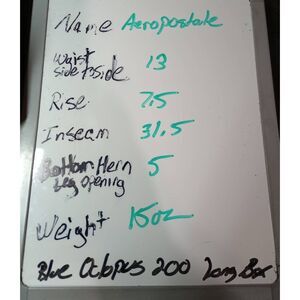 Name Aeropostale
Waist side to side 13
Rise 7.5
Inseam 31.5
Bottom Hem 5
Leg Opening
Weight 15oz
Blue Octopus 200 Long Box